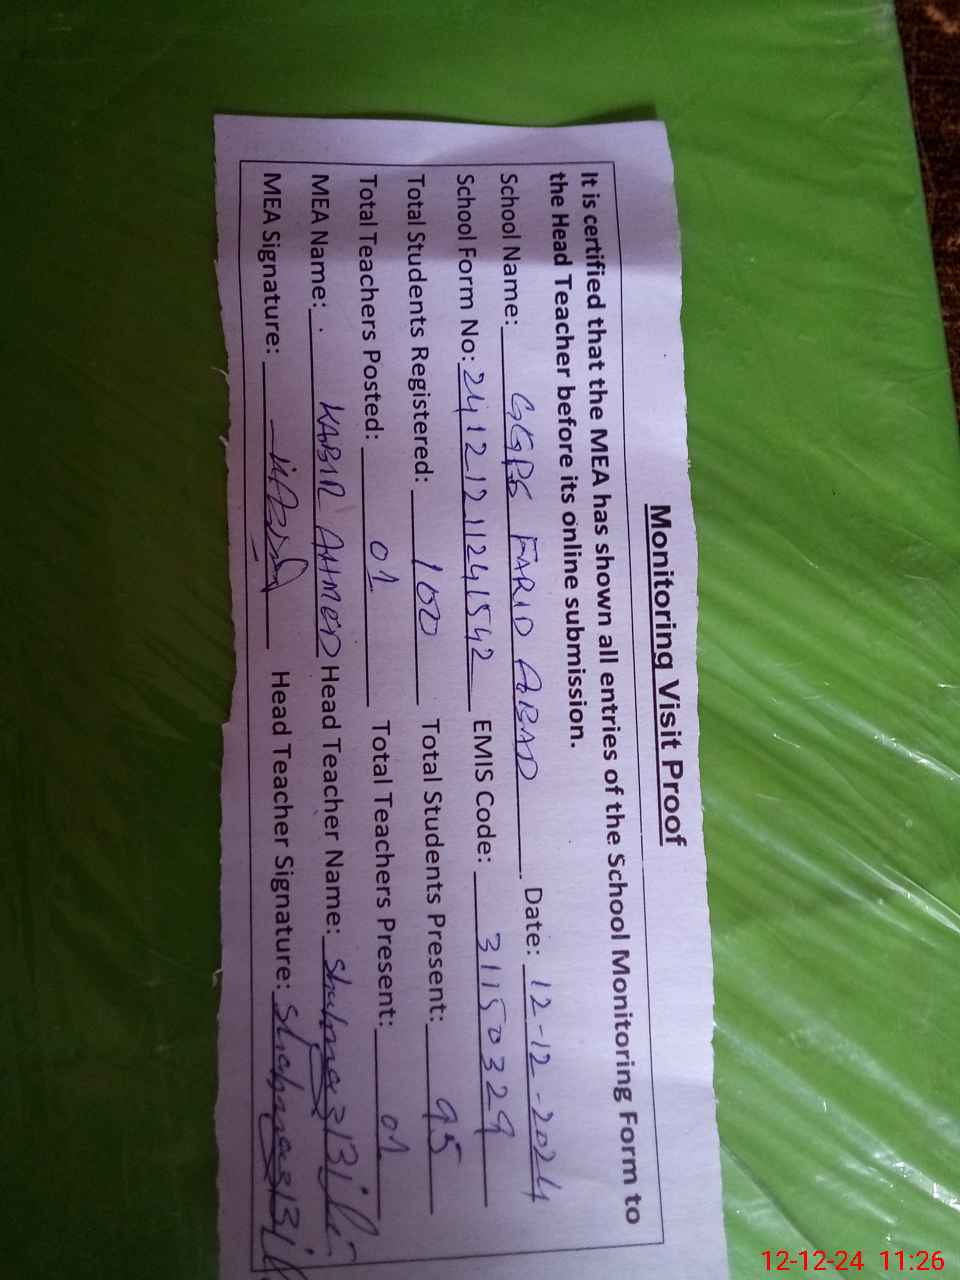 Monitoring Visit Proof
It is certified that the MEA has shown all entries of the School Monitoring Form to
the Head Teacher before its online submission.
School Name: GGPS FARID ABAD Date: 12-12-2024
School Form No: 24121211241542 EMIS Code: 31150329
Total Students Registered: 100 Total Students Present: 95
Total Teachers Posted: 01 Total Teachers Present: 01
MEA Name: KABIR AHMED Head Teacher Name:
MEA Signature: Head Teacher Signature:
12-12-24 11:26